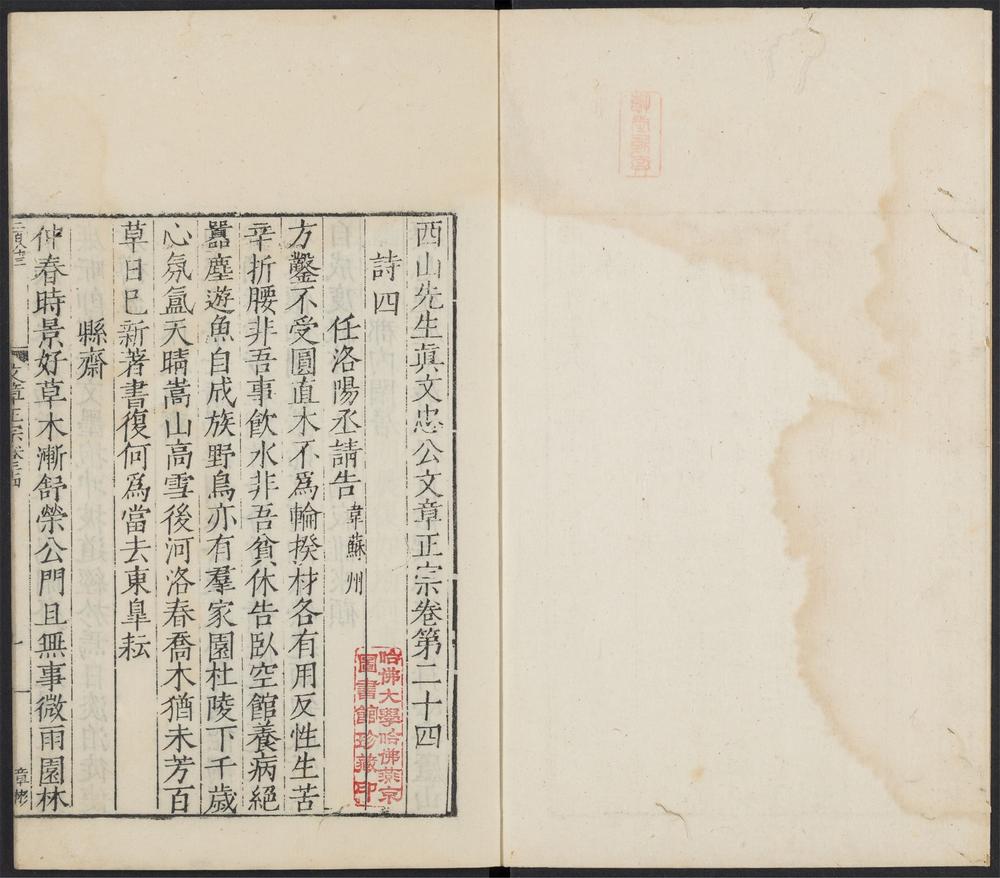 西山先生眞文忠公文章正宗卷第二十四
詩四
任洛陽丞請告 韋蘇州
方鑿不受圓直木不爲輪揆材各有用反性生苦
辛折腰非吾事飲水非吾貧休告臥空館養病絕
囂塵遊魚自成族野鳥亦有羣家園杜陵下千歲
心氛氳天晴嵩山高雪後河洛春喬木猶未芳百
草日已新著書復何爲當去東臯耘
縣齋
仲春時景好草木漸舒榮公門且無事微雨園林
文章正宗卷二十四
一
章彬
哈佛大學哈佛燕京
圖書館珍藏印